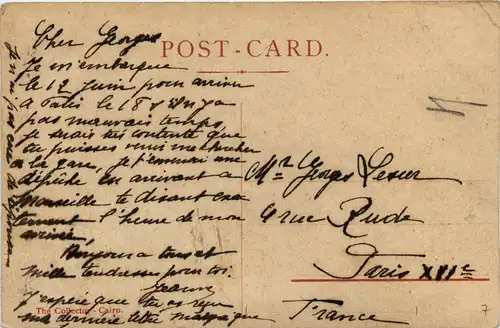 POST-CARD.
Cher Georges
Je m'embarque
le 12 Juin pour arriver
à Paris le 18 s'il n'y a
pas mauvais temps
Je serais très contente que
tu puisses venir me chercher
à la gare, je t'enverrai une
dépêche en arrivant à
Marseille te disant exac
tement l'heure de mon
arrivée,
Bonjours a tous et
mille tendresses pour toi.
Jeanne
j'espère que tu as reçu
ma dernière lettre
Mr Georges Lesur
4 rue Rude
Paris XVIe
France
The Collector - Cairo.